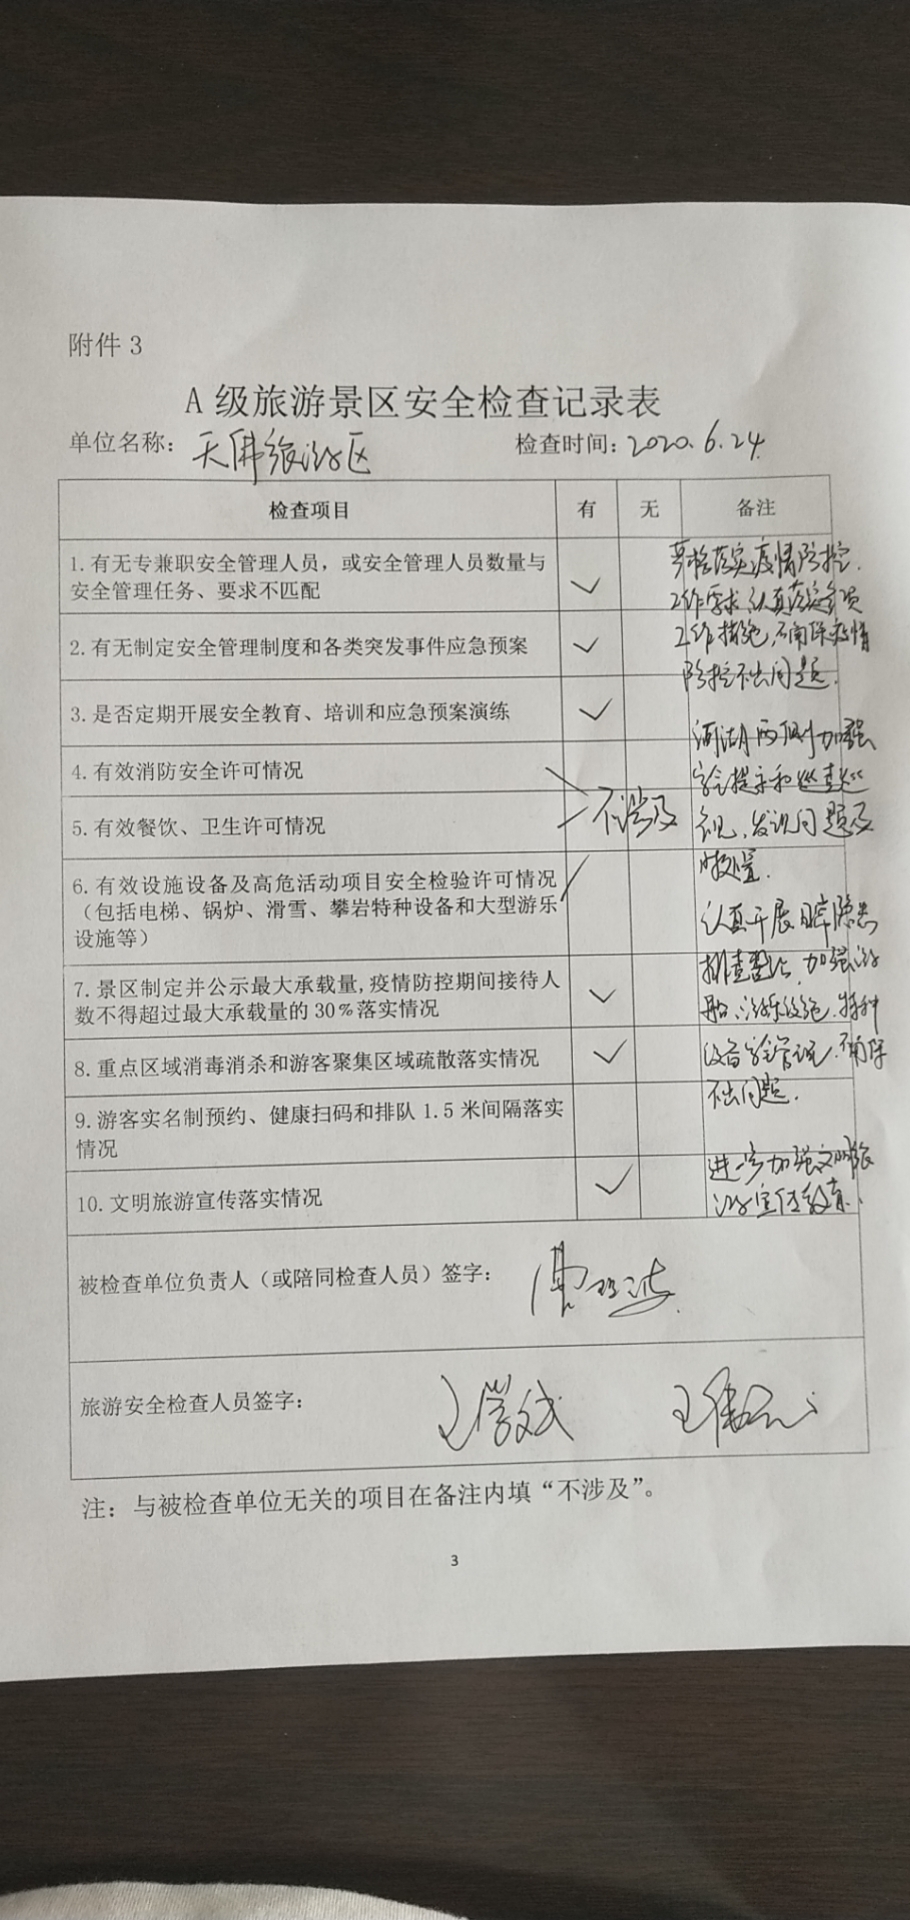 附件 3
A 级旅游景区安全检查记录表
单位名称：天佛旅游区 检查时间：2020.6.24.
检查项目 有 无 备注
1.有无专兼职安全管理人员，或安全管理人员数量与
安全管理任务、要求不匹配 ✓
2.有无制定安全管理制度和各类突发事件应急预案 ✓
3.是否定期开展安全教育、培训和应急预案演练 ✓
4.有效消防安全许可情况
5.有效餐饮、卫生许可情况
不涉及
6.有效设施设备及高危活动项目安全检验许可情况
（包括电梯、锅炉、滑雪、攀岩特种设备和大型游乐
设施等）
7.景区制定并公示最大承载量,疫情防控期间接待人
数不得超过最大承载量的 30%落实情况 ✓
8.重点区域消毒消杀和游客聚集区域疏散落实情况 ✓
9.游客实名制预约、健康扫码和排队 1.5 米间隔落实
情况
10.文明旅游宣传落实情况 ✓
严格落实疫情防控
工作要求,认真落实各项
工作措施,确保疫情
防控不出问题.
河湖两侧加强
安全提示和巡查巡
视,发现问题及
时处置.
认真开展日常隐患
排查整治,加强游
船、游乐设施、特种
设备安全管理,确保
不出问题.
进一步加强文明旅
游宣传教育.
被检查单位负责人（或陪同检查人员）签字：
旅游安全检查人员签字：
注：与被检查单位无关的项目在备注内填“不涉及”。
3